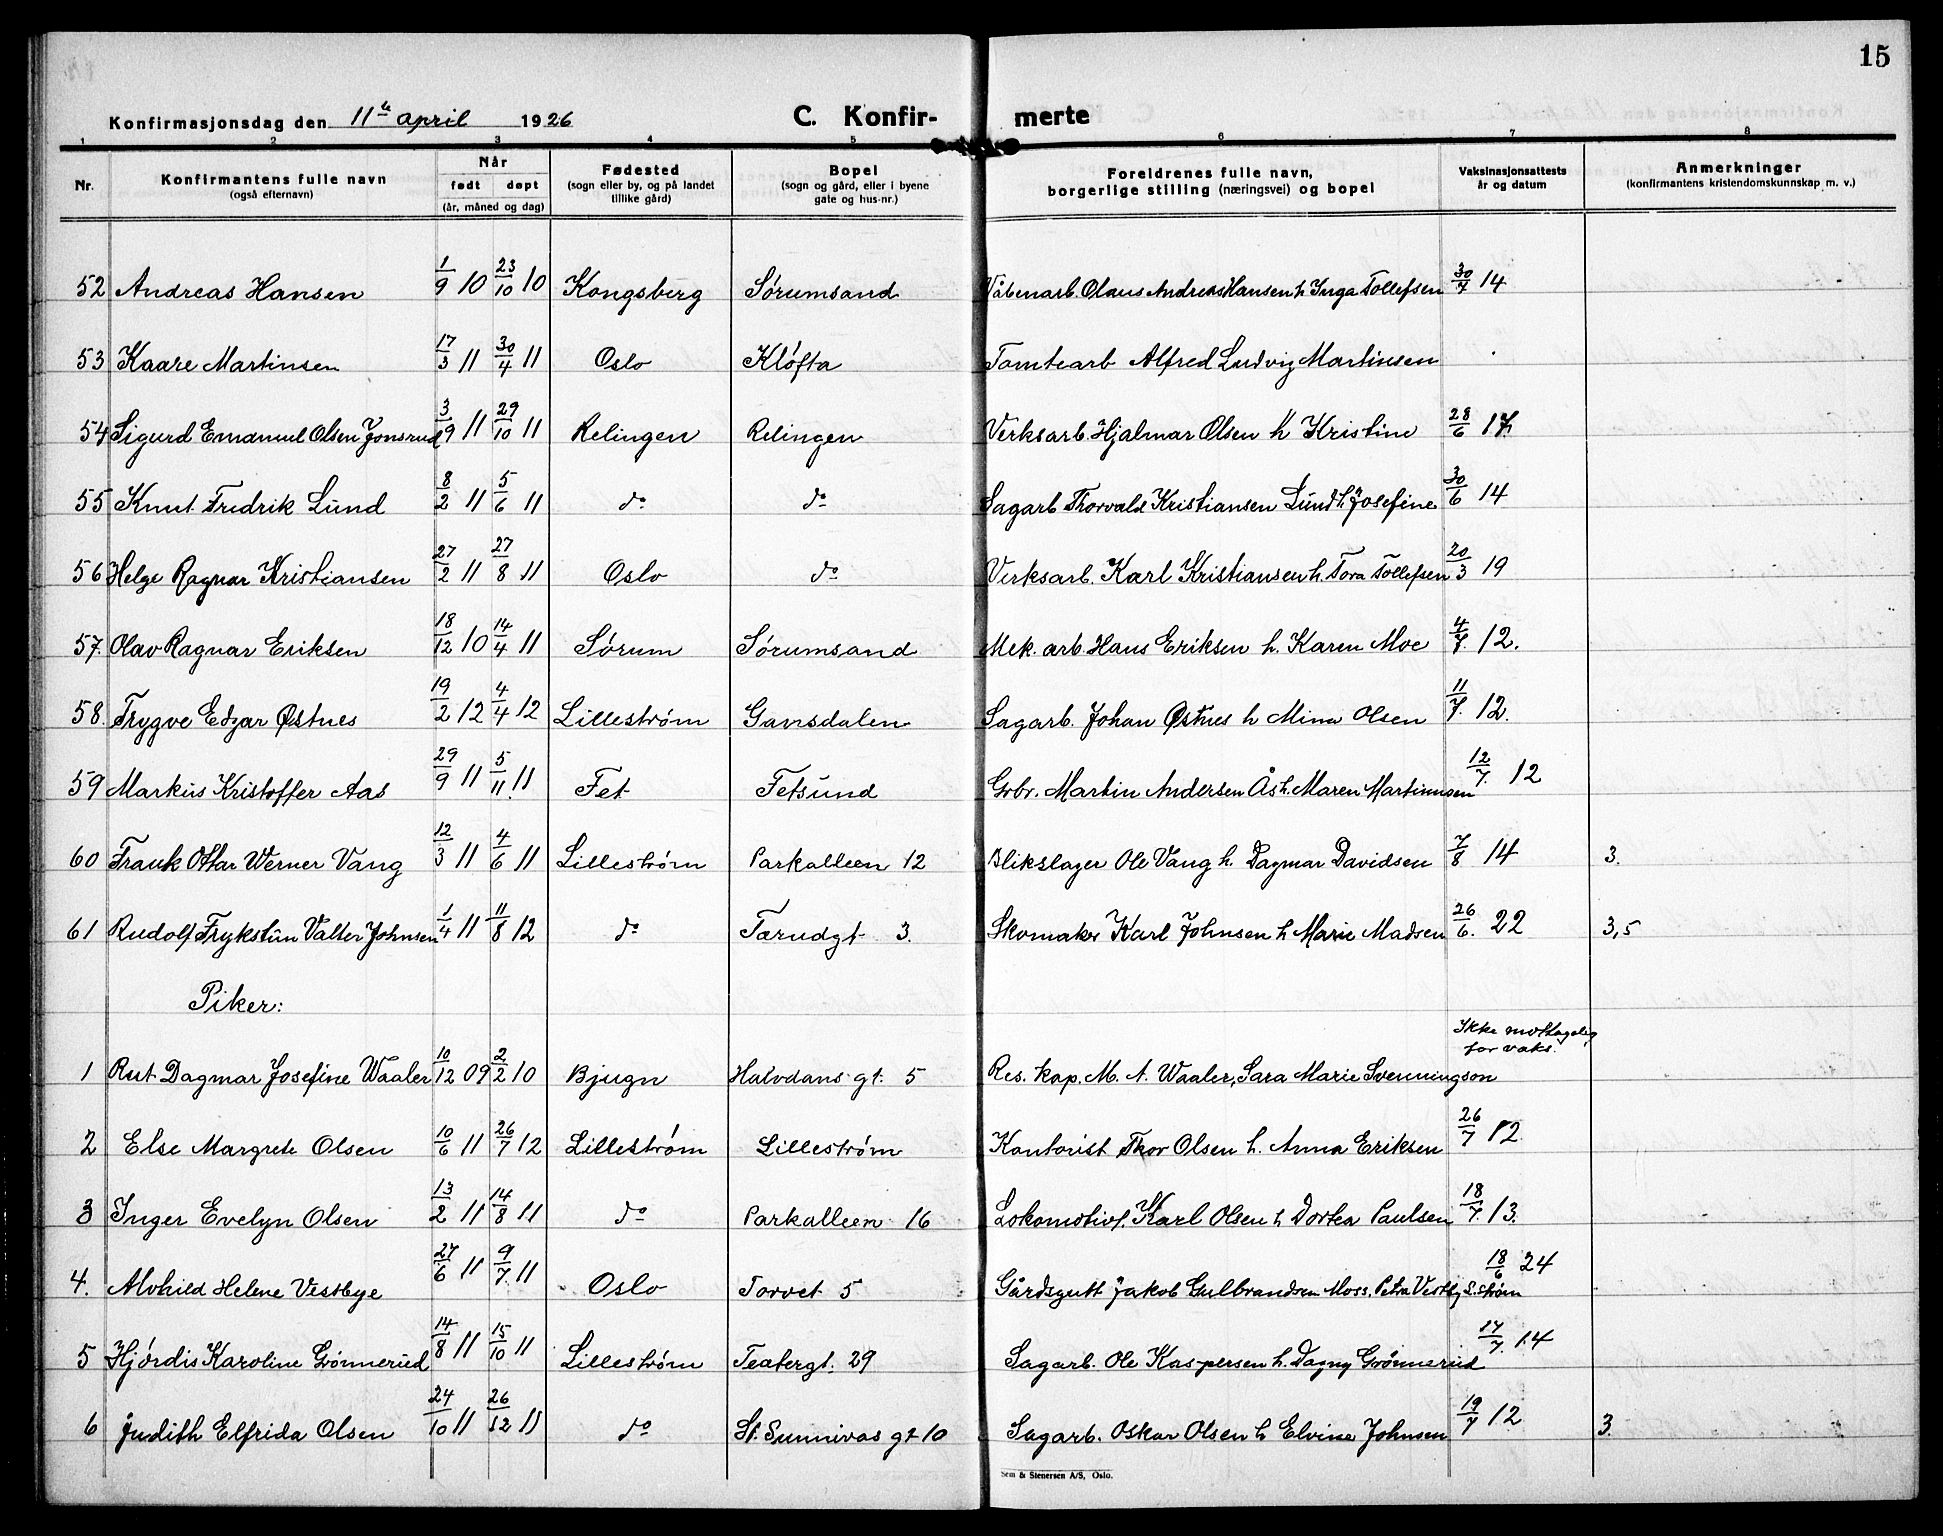 15
Konfirmasjonsdag den 11te april 1926 C. Konfir- merte
1 2 3 4 5 6 7 8
Nr. Konfirmantens fulle navn (også efternavn) Når født døpt (år, måned og dag) Fødested (sogn eller by, og på landet tillike gård) Bopel (sogn og gård, eller i byene gate og hus-nr.) Foreldrenes fulle navn, borgerlige stilling (næringsvei) og bopel Vaksinasjonsattests år og datum Anmerkninger (konfirmantens kristendomskunnskap m. v.)
52 Andreas Hansen 1/9 10 23/10 10 Kongsberg Sørumsand Våbenarb. Olaus Andreas Hansen h Inga Tollefsen 30/7 14
53 Kaare Martinsen 17/3 11 30/4 11 Oslo Kløfta Tomtearb Alfred Ludvig Martinsen
54 Sigurd Emanuel Olsen Jonsrud 3/9 11 29/10 11 Relingen Relingen Verksarb. Hjalmar Olsen h Kristine 28/6 17.
55 Knut Fredrik Lund 8/2 11 5/6 11 do do Sagarb Thorvald Kristiansen Lund h Josefine 30/6 14
56 Helge Ragnar Kristiansen 27/2 11 27/8 11 Oslo do Verksarb. Karl Kristiansen h. Tora Tollefsen 20/3 19
57. Olav Ragnar Eriksen 18/12 10 14/4 11 Sørum Sørumsand Mek. arb. Hans Eriksen h. Karen Moe 4/7. 12.
58. Trygve Edgar Østnes 19/2 12 4/4 12 Lillestrøm Gansdalen Sagarb. Johan Østnes h Mina Olsen 11/7. 12.
59 Markus Kristoffer Aas 29/9 11 5/11. 11 Fet Fetsund Gbr. Martin Andersen Ås h. Maren Martinusen 12/7. 12
60 Frank Ottar Werner Vang 12/3 11 4/6 11 Lillestrøm Parkalleen 12 Blikslager Ole Vang h. Dagmar Davidsen 7/8 14 3.
61 Rudolf Frykstun Valter Johnsen 1/4 11 11/8 12 do Tærudgt 3. Skomaker Karl Johnsen h Marie Madsen 26/6. 22 3,5
Piker:
1 Rut Dagmar Josefine Waaler 10/12 09 2/2 10 Bjugn Halvdans gt. 5 Res. kap. M. A. Waaler, Sara Marie Svenningson Ikke mottagelig for vaks.
2 Else Margrete Olsen 10/6 11 26/7 12 Lillestrøm Lillestrøm Kontorist Thor Olsen h. Anna Eriksen 26/7 12
3 Inger Evelyn Olsen 13/2 11 14/8 11 do Parkalleen 16 Lokomotivf. Karl Olsen h Dortea Paulsen 18/7. 13.
4. Alvhild Helene Vestbye 27/6 11 9/7. 11 Oslo Torvet 5 Gårdsgutt Jakob Gulbrandsen Moss, Petra Vestby L.strøm 18/6 24
5 Hjørdis Karoline Grønnerud 14/8 11 15/10 11 Lillestrøm Teatergt. 29 Sagarb. Ole Kaspersen h. Dagny Grønnerud 17/7. 14
6 Judith Elfrida Olsen 24/10 11 26/12 11 do St. Sunnivas gt 10 Sagarb. Oskar Olsen h Elvine Johnsen 19/7 12 3.
Sem & Stenersen A/S, Oslo.